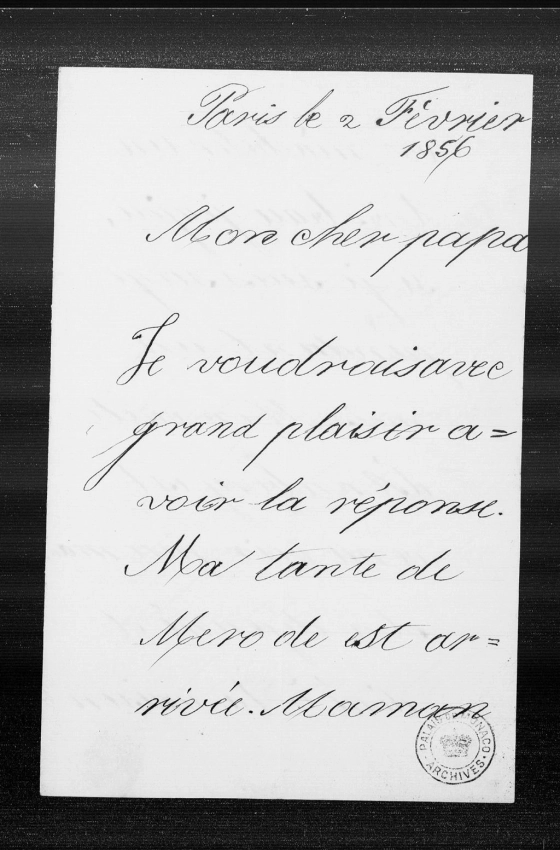 Paris le 2 Février
1856
Mon cher papa
Je voudrais avec
grand plaisir a=
voir la réponse.
Ma tante de
Merode est ar=
rivée. Maman
PALAIS DE MONACO
ARCHIVES